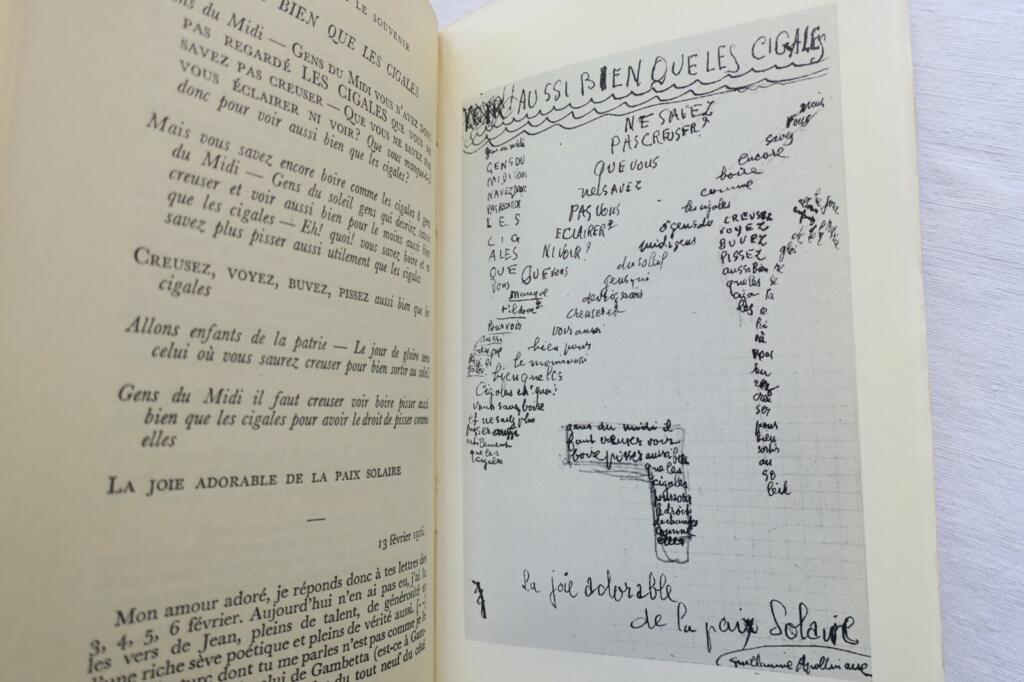 LE SOUVENIR
BIEN QUE LES CIGALES
du Midi — Gens du Midi vous n'avez donc
pas regardé LES CIGALES que vous ne
savez pas creuser — Que vous ne savez pas
vous éclairer ni voir? Que vous manque-t-il
donc pour voir aussi bien que les cigales?
Mais vous savez encore boire comme les cigales ô gens
du Midi — Gens du soleil gens qui devriez savoir
creuser et voir aussi bien pour le moins aussi bien
que les cigales — Eh! quoi! vous savez boire et ne
savez plus pisser aussi utilement que les cigales
Creusez, voyez, buvez, pissez aussi bien que les
cigales
Allons enfants de la patrie — Le jour de gloire sera
celui où vous saurez creuser pour bien sortir au soleil
Gens du Midi il faut creuser voir boire pisser aussi
bien que les cigales pour avoir le droit de pisser comme
elles
La joie adorable de la paix solaire
13 février 1916.
Mon amour adoré, je réponds donc à tes lettres des
3, 4, 5, 6 février. Aujourd'hui n'en ai pas eu, j'ai lu
les vers de Jean, pleins de talent, de générosité et
d'une riche sève poétique et pleins de vérité aussi. [...]
dont tu me parles n'est pas comme je le
celui de Gambetta (est-ce à Gam-
du tout neuf du côté
AUSSI BIEN QUE LES CIGALES
gens du midi
GENS DU
MIDI VOUS
N'AVEZ DONC
PAS REGARDE
LES
CIG
ALES
QUE
VOUS
NE SAVEZ
PAS CREUSER?
QUE VOUS
NE SAVEZ
PAS VOUS
ECLAIRER?
NI VOIR?
QUE VOUS
manque
t il donc
pour voir
aussi
bien que
les ci
gales
mais
vous
savez
encore
boire
comme
les cigales
ô gens du
midi gens
du soleil
gens qui
devriez savoir
creuser et
voir aussi
bien pour
le moins aussi
bien que les
Cigales eh quoi!
vous savez boire
et ne savez plus
pisser aussi
utilement
que les
cigales
CREUSEZ
VOYEZ
BUVEZ
PISSEZ
aussi bien
que les
ciga
les
où
vous
sau
rez
creu
ser
pour
bien
sortir
au
so
leil
gens du midi il
faut creuser voir
boire pisser aussi bien
que les
cigales
pour avoir
le droit
de chanter
comme
elles
La joie adorable
de la paix Solaire
Guillaume Apollinaire